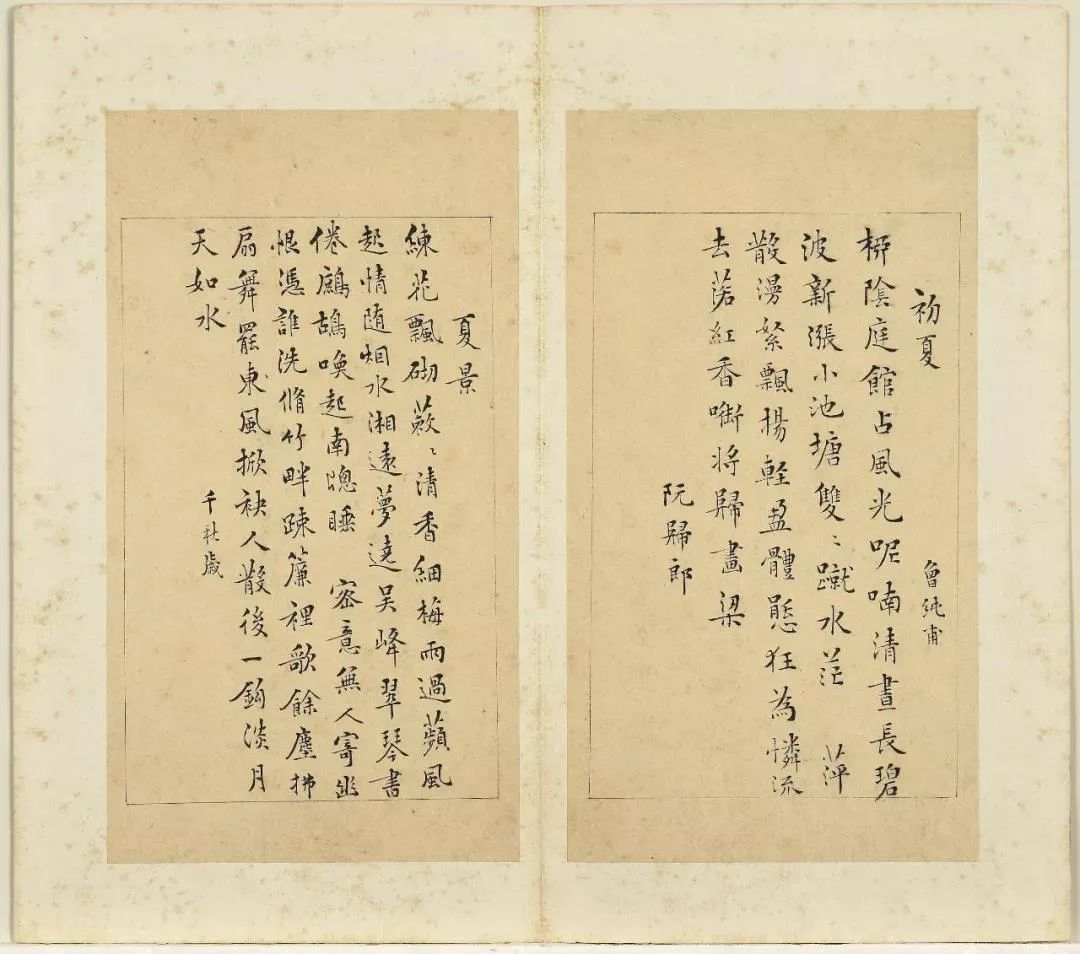 初夏 曾純甫
栁陰庭館占風光呢喃清晝長碧
波新漲小池塘雙〻蹴水茫 萍
散漫絮飄揚軽盈體態狂為憐流
去落紅香啣將歸畫梁
阮歸郎
夏景
練花飄砌蔌〻清香細梅雨過蘋風
起情随烟水湘遠夢遶吴峰翠琴書
倦鷓鴣喚起南牕睡 密意無人寄幽
恨憑誰洗脩竹畔疎簾裡歌餘塵拂
扇舞罷東風掀袂人散後一鈎淡月
天如水
千秋歲